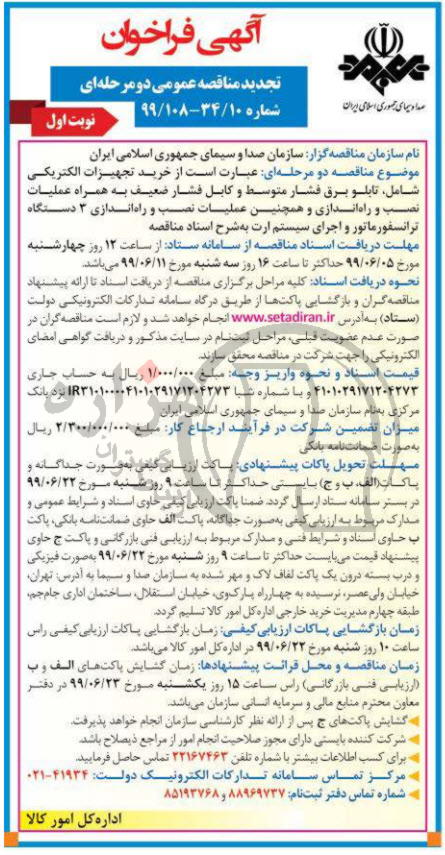 آگهی فراخوان
تجدید مناقصه عمومی دو مرحله‌ای
شماره ۳۴/۱۰-۹۹/۱۰۸
نوبت اول
صدا و سیمای جمهوری اسلامی ایران
نام سازمان مناقصه‌گزار: سازمان صدا و سیمای جمهوری اسلامی ایران
موضوع مناقصه دو مرحله‌ای: عبارت است از خرید تجهیزات الکتریکی
شامل، تابلو برق فشار متوسط و کابل فشار ضعیف به همراه عملیات
نصب و راه‌اندازی و همچنین عملیات نصب و راه‌اندازی ۳ دستگاه
ترانسفورماتور و اجرای سیستم ارت به‌شرح اسناد مناقصه
مهلت دریافت اسناد مناقصه از سامانه ستاد: از ساعت ۱۲ روز چهارشنبه
مورخ ۹۹/۰۶/۰۵ حداکثر تا ساعت ۱۶ روز سه شنبه مورخ ۹۹/۰۶/۱۱ می‌باشد.
نحوه دریافت اسناد: کلیه مراحل برگزاری مناقصه از دریافت اسناد تا ارائه پیشنهاد
مناقصه‌گران و بازگشایی پاکت‌ها از طریق درگاه سامانه تدارکات الکترونیکی دولت
(ستاد) به‌آدرس www.setadiran.ir انجام خواهد شد و لازم است مناقصه‌گران در
صورت عدم عضویت قبلی، مراحل ثبت‌نام در سایت مذکور و دریافت گواهی امضای
الکترونیکی را جهت شرکت در مناقصه محقق سازند.
قیمت اسناد و نحوه واریز وجه: مبلغ ۱/۰۰۰/۰۰۰ ریال به حساب جاری
۴۱۰۱۰۲۹۱۷۱۲۰۴۲۷۳ و با شماره شبا IR۳۱۰۱۰۰۰۰۴۱۰۱۰۲۹۱۷۱۲۰۴۲۷۳ نزد بانک
مرکزی به‌نام سازمان صدا و سیمای جمهوری اسلامی ایران
میزان تضمین شرکت در فرآیند ارجاع کار: مبلغ ۲/۳۰۰/۰۰۰/۰۰۰ ریال
به‌صورت ضمانت‌نامه بانکی
مهلت تحویل پاکات پیشنهادی: پاکت ارزیابی کیفی به‌صورت جداگانه و
پاکات (الف، ب و ج) بایستی حداکثر تا ساعت ۹ روز شنبه مورخ ۹۹/۰۶/۲۲
در بستر سامانه ستاد ارسال گردد. ضمنا پاکت ارزیابی کیفی حاوی اسناد و شرایط عمومی و
مدارک مربوط به ارزیابی کیفی به‌صورت جداگانه، پاکت الف حاوی ضمانت‌نامه بانکی، پاکت
ب حاوی اسناد و شرایط فنی و مدارک مربوط به ارزیابی فنی بازرگانی و پاکت ج حاوی
پیشنهاد قیمت می‌بایست حداکثر تا ساعت ۹ روز شنبه مورخ ۹۹/۰۶/۲۲ به‌صورت فیزیکی
و درب بسته درون یک پاکت لفاف لاک و مهر شده به سازمان صدا و سیما به آدرس: تهران،
خیابان ولی‌عصر، نرسیده به چهارراه پارک‌وی، خیابان استقلال، ساختمان اداری جام‌جم،
طبقه چهارم مدیریت خرید خارجی اداره‌کل امور کالا تسلیم گردد.
زمان بازگشایی پاکات ارزیابی‌کیفی: زمان بازگشایی پاکات ارزیابی‌کیفی راس
ساعت ۱۰ روز شنبه مورخ ۹۹/۰۶/۲۲ در اداره‌کل امور کالا می‌باشد.
زمان مناقصه و محل قرائت پیشنهادها: زمان گشایش پاکت‌های الف و ب
(ارزیابی فنی بازرگانی) راس ساعت ۱۵ روز یکشنبه مورخ ۹۹/۰۶/۲۳ در دفتر
معاون محترم منابع مالی و سرمایه انسانی سازمان می‌باشد.
گشایش پاکت‌های ج پس از ارائه نظر کارشناسی سازمان انجام خواهد پذیرفت.
شرکت کننده بایستی دارای مجوز صلاحیت انجام امور از مراجع ذیصلاح باشد.
برای کسب اطلاعات بیشتر با شماره تلفن ۲۲۱۶۷۴۶۳ تماس حاصل فرمایید.
مرکز تماس سامانه تدارکات الکترونیک دولت: ۴۱۹۳۴-۰۲۱
شماره تماس دفتر ثبت‌نام: ۸۸۹۶۹۷۳۷ و ۸۵۱۹۳۷۶۸
اداره‌کل امور کالا